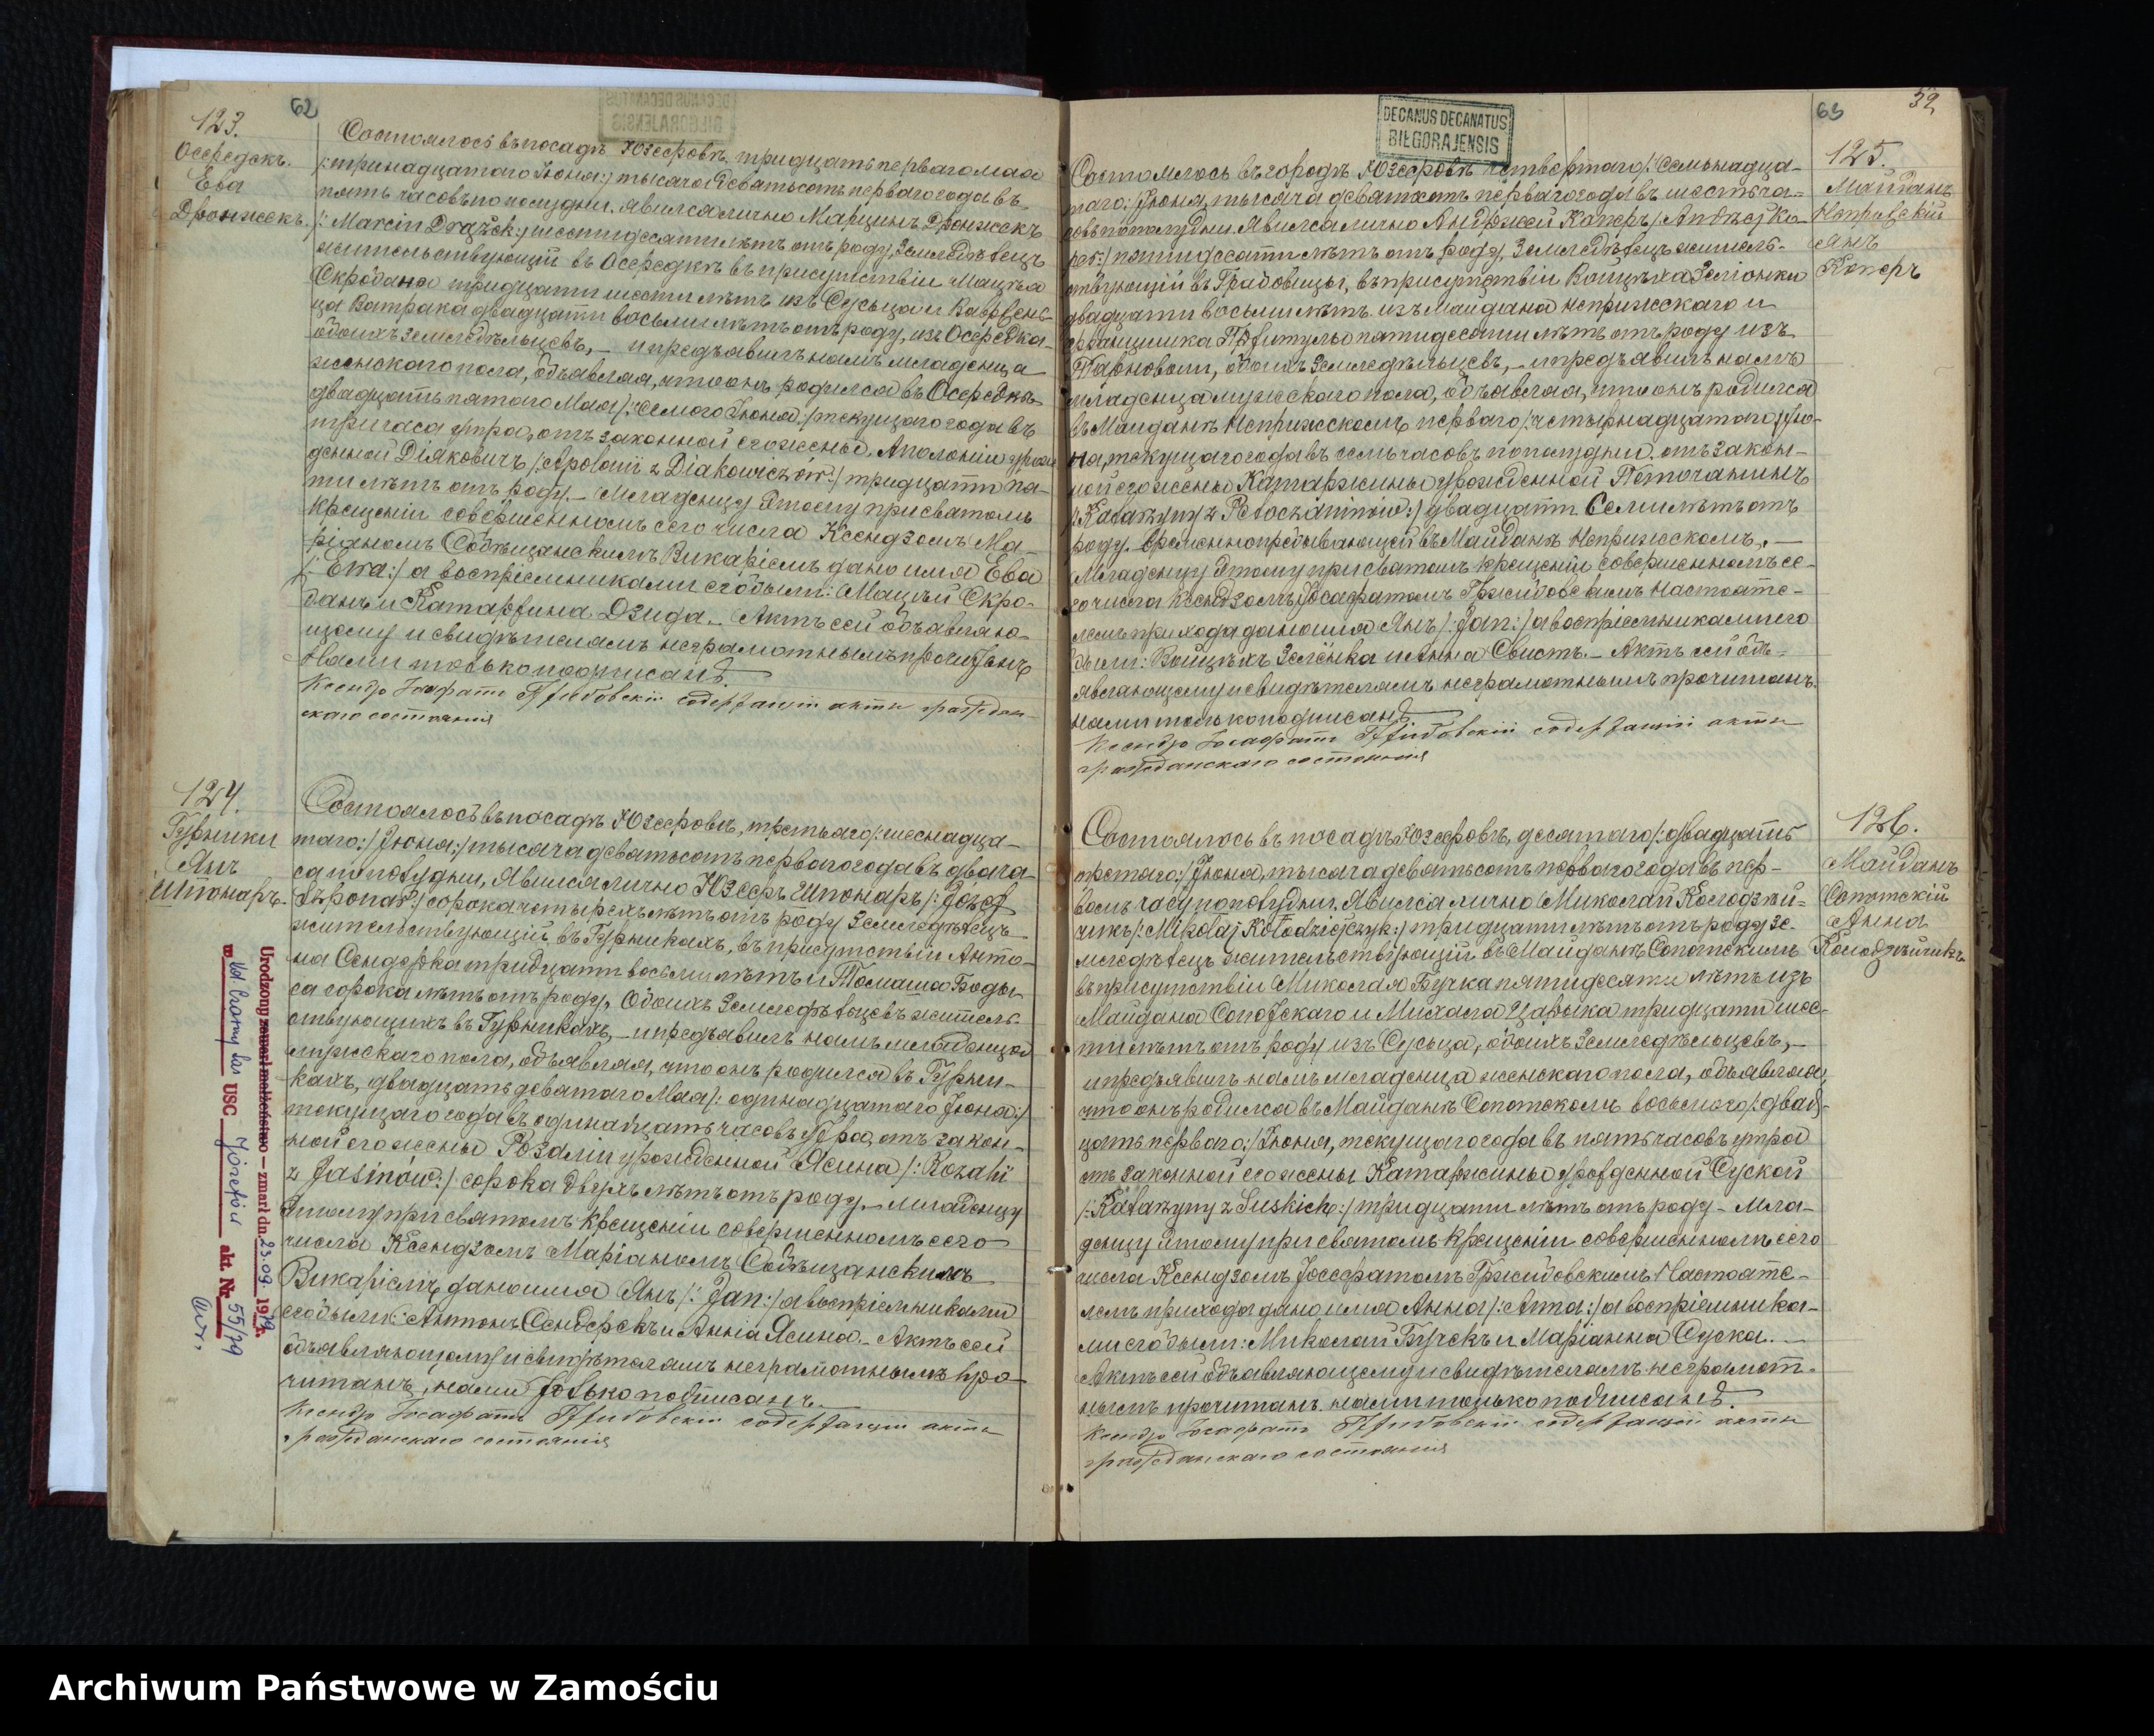 62
123.
Осередекъ.
Ева
Дронжекъ.
Состоялось въ посадѣ Юзефовѣ, тридцать перваго мая
/:тринадцатаго Іюня:/ тысяча девятьсотъ перваго года въ
пять часовъ по полудни. Явился лично Марцинъ Дронжекъ
/:Marcin Drążek:/ шестидесяти лѣтъ отъ роду, Земледѣлецъ
жительствующій въ Осередкѣ въ присутствіи Мацѣя
Скродана тридцати шести лѣтъ изъ Сусьца и Вавржень-
ца Ватрака двадцати восьми лѣтъ отъ роду, изъ Осередка
обоихъ Земледѣльцевъ, — и предъявилъ намъ младенца
женскаго пола, объявляя, что онъ родился въ Осередкѣ
двадцать пятаго Мая /:седмого Іюня:/ текущаго года въ
три часа утра, отъ законной его жены, Аполоніи урож-
денной Діяковичъ /:Apolonii z Diakowiczów:/ тридцати пя-
ти лѣтъ отъ роду. — Младенцу этому при святомъ
крещеніи совершенномъ сего числа Ксендзомъ Ма-
ріаномъ Собѣщанскимъ Викаріемъ дано имя Ева
/:Ewa:/ а воспріемниками его были: Мацѣй Скро-
данъ и Катаржина Дзида. — Актъ сей объявляю-
щему и свидѣтелямъ неграмотнымъ прочитанъ
Нами только подписанъ.
Ксендзъ Іосафатъ Гржибовскій содержащій акты граждан-
скаго состоянія
124.
Гурники
Янъ
Шпонаръ.
Состоялось въ посадѣ Юзефовѣ, третьяго /:шеснадца-
таго:/ Іюня:/ тысяча девятьсотъ перваго года въ два ча-
са по полудни, Явился лично Юзефъ Шпонаръ /:Józef
Szponar:/ сорока четырехъ лѣтъ отъ роду Земледѣлецъ
жительствующій въ Гурникахъ, въ присутствіи Анто-
на Сендерка тридцати восьми лѣтъ и Томаша Боды-
са сорока лѣтъ отъ роду, Обоихъ Земледѣльцевъ житель-
ствующихъ въ Гурникахъ, — и предъявилъ намъ младенца
мужскаго пола, объявляя, что онъ родился въ Гурни-
кахъ, двадцать девятаго Мая /: одинадцатаго Іюня:/
текущаго года въ одинадцать часовъ утра, отъ закон-
ной его жены Розаліи урожденной Ясина /:Rozalii
z Jasinów:/ сорока двухъ лѣтъ отъ роду. — Младенцу
этому при святомъ крещеніи совершенномъ сего
числа Ксендзомъ Маріаномъ Собѣщанскимъ
Викаріемъ дано имя Янъ /: Jan:/ а воспріемниками
его были: Антонъ Сендерекъ и Анна Ясина. — Актъ сей
объявляющему и свидѣтелямъ неграмотнымъ про-
читанъ, нами только подписанъ.
Ксендзъ Іосафатъ Гржибовскій содержащій акты
гражданскаго состоянія
Urodzony zawarł małżeństwo — zmarł dn. 23.09. 1979r.
w USC Józefów akt. Nr 55/79
DECANUS DECANATUS
BIŁGORAJENSIS
63
52
125.
Майданъ
Непрыскій
Янъ
Коперъ
Состоялось въ городѣ Юзефовѣ четвертаго /:семьнадца-
таго:/ Іюня, тысяча девятьсотъ перваго года въ шесть ча-
совъ по полудни. Явился лично Андржей Коперъ /:Andrzej Ko-
per:/ пятидесяти лѣтъ отъ роду, Земледѣлецъ житель-
ствующій въ Градовицы, въ присутствіи Войцѣха Зелёнки
двадцати восьми лѣтъ изъ Майдана Непрыжскаго и
францишка пятидесяти лѣтъ отъ роду изъ
Тарноволи, обоихъ Земледѣльцевъ, — и предъявилъ намъ
младенца мужескаго пола, объявляя, что онъ родился
въ Майданѣ Непрыжскомъ перваго /:четырнадцатаго:/ Ію-
ня, текущаго года въ семь часовъ по полудни, отъ закон-
ной его жены Катаржины урожденной Поточанинъ
/:Katarzyny z Potoczaninów:/ двадцати Семи лѣтъ отъ
роду. Временно пребывающей въ Майданѣ Непрыжскомъ. —
Младенцу этому при святомъ крещеніи совершенномъ се-
го числа Ксендзомъ Іосафатомъ Гржибовскимъ Настояте-
лемъ прихода дано имя Янъ /:Jan:/ а воспріемниками его
были: Войцѣхъ Зелёнка и Анна Свистъ. — Актъ сей объ-
являющему и свидѣтелямъ неграмотнымъ прочитанъ.
нами только подписанъ.
Ксендзъ Іосафатъ Гржибовскій содержащій акты
гражданскаго состоянія
126.
Майданъ
Сопотскій
Анна
Колодзѣйчикъ
Состоялось въ посадѣ Юзефовѣ, десятаго /:двадцать
третяго:/ Іюня, тысяча девятьсотъ перваго года въ пер-
вомъ часу по полудни. Явился лично Миколай Колодзѣй-
чикъ /:Mikołaj Kołodziejczyk:/ тридцати лѣтъ отъ роду Зе-
мледѣлецъ жительствующій въ Майданѣ Сопотскимъ
въ присутствіи Миколая Бучка пятидесяти лѣтъ изъ
Майдана Сопотскаго и Михала Царыка тридцати шес-
ти лѣтъ отъ роду изъ Сусьца, обоихъ Земледѣльцевъ, —
и предъявилъ намъ младенца женскаго пола, объявляя,
что онъ родился въ Майданѣ Сопотскомъ восьмого /:двад-
цать перваго:/ Іюня, текущаго года въ пять часовъ утра
отъ законной его жены Катаржины урожденной Суской
/:Katarzyny z Suskich:/ тридцати лѣтъ отъ роду — Мла-
денцу этому при святомъ крещеніи совершенномъ сего
числа Ксендзомъ Іосефатомъ Гржибовскимъ Настояте-
лемъ прихода дано имя Анна /:Anna:/ а воспріемника-
ми его были: Миколай Бучекъ и Маріанна Суска. —
Актъ сей объявляющему и свидѣтелямъ неграмот-
нымъ прочитанъ. нами только подписанъ.
Ксендзъ Іосафатъ Гржибовскій содержащій акты
гражданскаго состоянія
Archiwum Państwowe w Zamościu